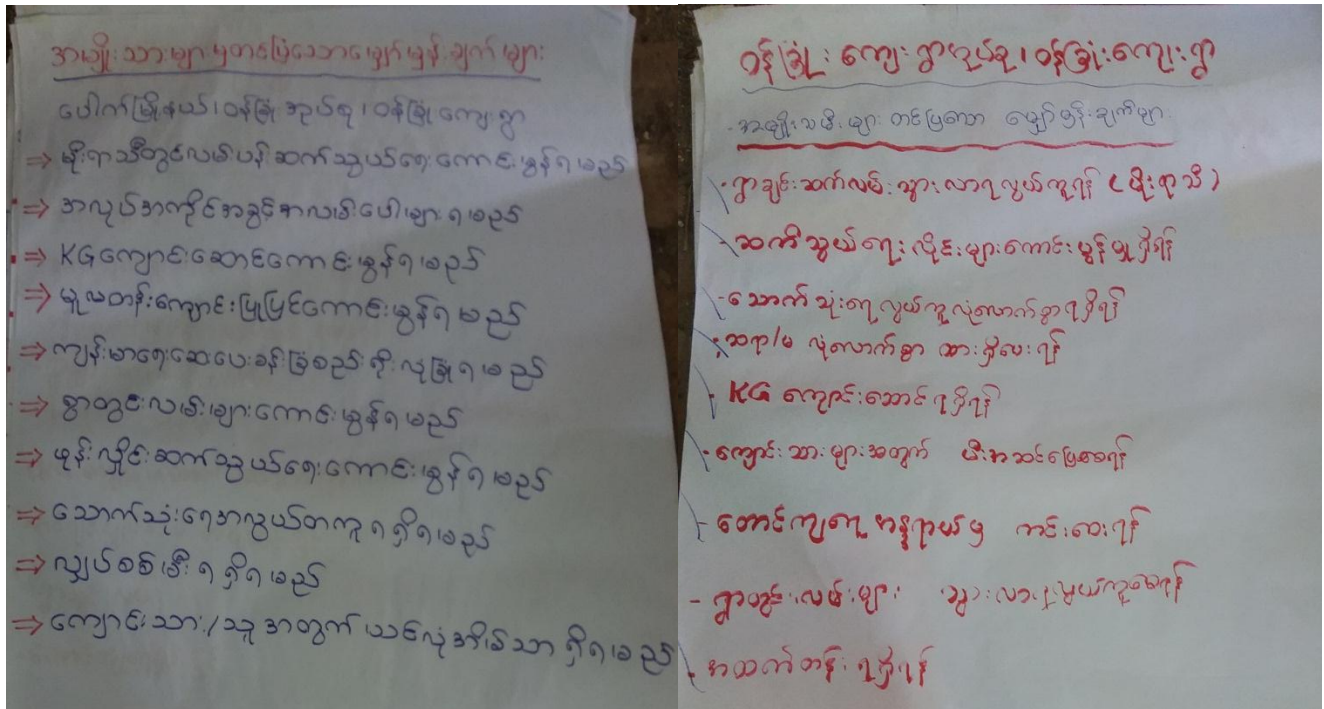 အမျိုးသားများမှတင်ပြသောမျှော်မှန်းချက်များ
ပေါက်မြို့နယ်၊ ဝန်ခြုံအုပ်စု၊ ဝန်ခြုံကျေးရွာ
⇒ မိုးရာသီတွင်လမ်းပန်းဆက်သွယ်ရေးကောင်းမွန်ရမည်
⇒ အလုပ်အကိုင်အခွင့်အလမ်းပေါများရမည်
⇒ KGကျောင်းဆောင်ကောင်းမွန်ရမည်
⇒ မူလတန်းကျောင်းပြုပြင်ကောင်းမွန်ရမည်
⇒ ကျန်းမာရေးဆေးပေးခန်းခြံစည်းရိုးလုံခြုံရမည်
⇒ ရွာတွင်းလမ်းများကောင်းမွန်ရမည်
⇒ ဖုန်းလှိုင်းဆက်သွယ်ရေးကောင်းမွန်ရမည်
⇒ သောက်သုံးရေအလွယ်တကူရရှိရမည်
⇒ လျှပ်စစ်မီးရရှိရမည်
⇒ ကျောင်းသား/သူအတွက်ယင်လုံအိမ်သာရှိရမည်
ဝန်ခြုံးကျေးရွာအုပ်စု၊ ဝန်ခြုံးကျေးရွာ
-အမျိုးသမီးများ တင်ပြသော မျှော်မှန်းချက်များ
- ရွာချင်းဆက်လမ်းသွားလာရလွယ်ကူရန် (မိုးရာသီ)
- ဆက်သွယ်ရေးလိုင်းများကောင်းမွန်မှုရှိရန်
- သောက်သုံးရေလွယ်ကူလုံလောက်စွာရရှိရန်
- ဆရာ/မ လုံလောက်စွာ ထားရှိပေးရန်
- KG ကျောင်းဆောင်ရရှိရန်
- ကျောင်းသားများအတွက် မီးအဆင်ပြေစေရန်
- တောင်ကျရေအန္တရာယ်မှ ကင်းဝေးရန်
- ရွာတွင်းလမ်းများ သွားလာရလွယ်ကူစေရန်
- အထက်တန်းရရှိရန်